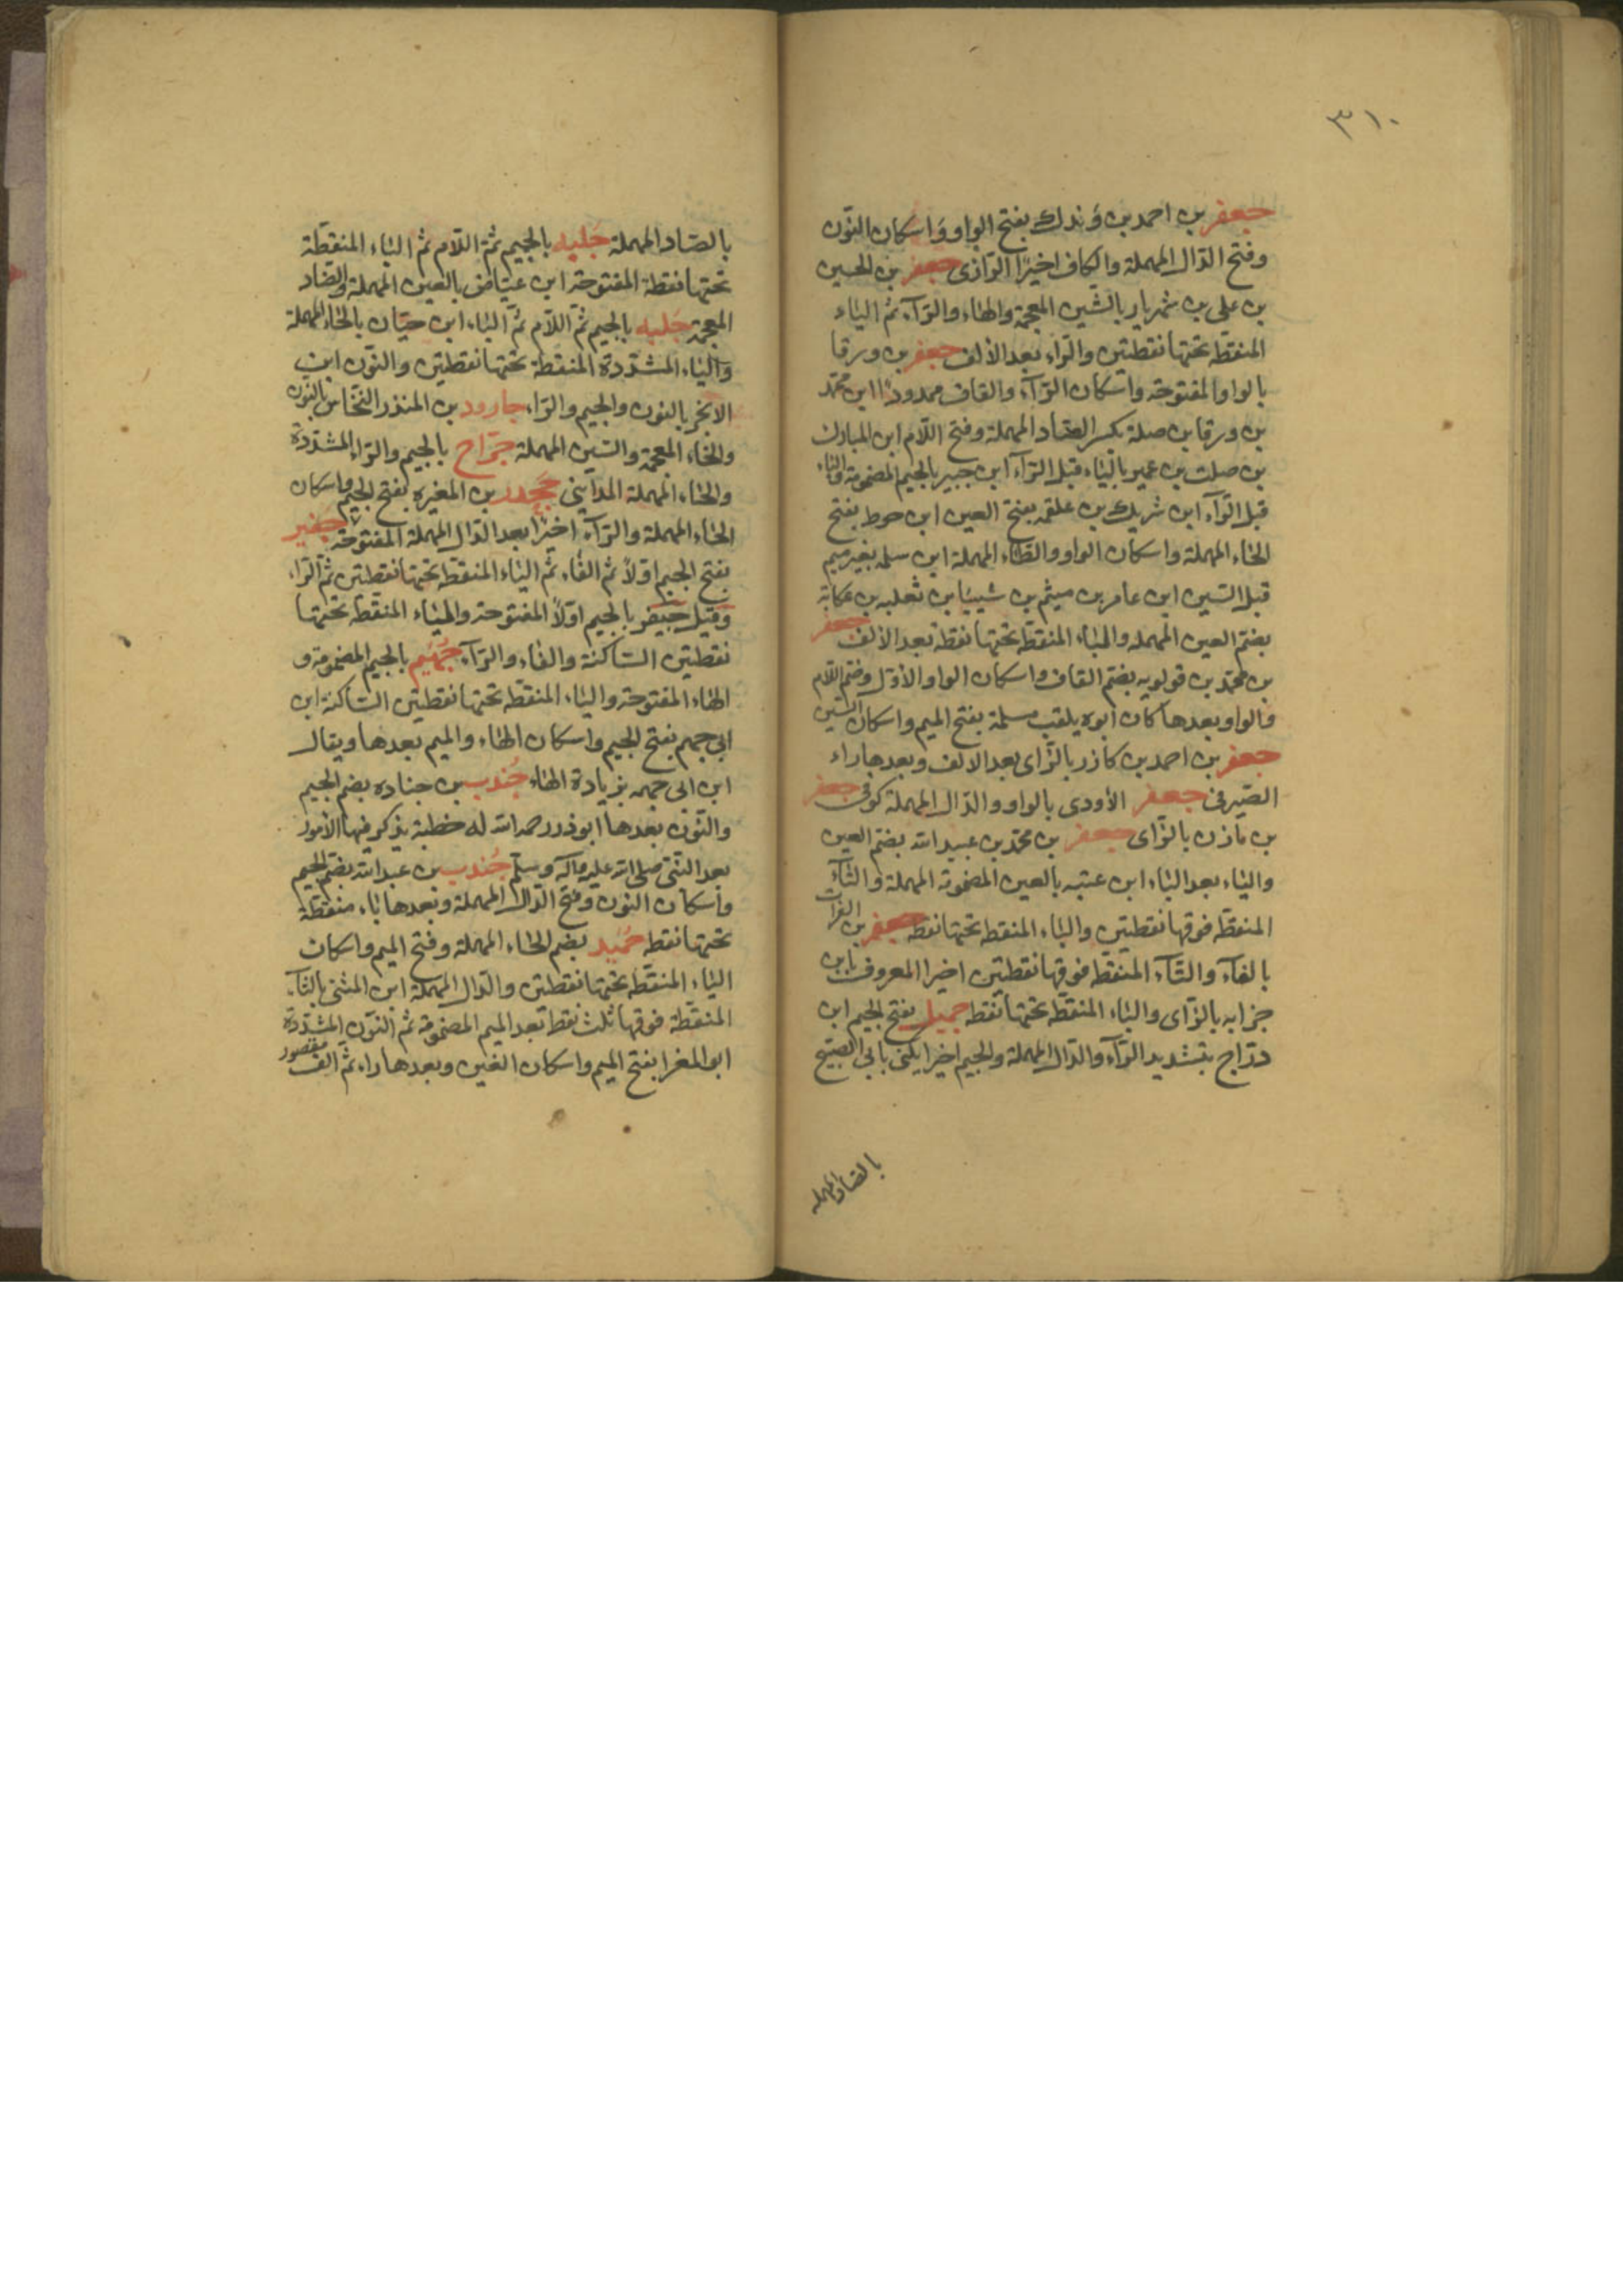 ٣١٠
جعفر بن احمد بن وَندك بفتح الواو وَاسكان النّون
وفتح الدّال المهملة والكاف اخيرًا الرّازى جعفر بن الحسين
بن على بن شهريار بالشين المعجمة والهاء والرّآء ثم الياء
المنقطة تحتها نقطتين والرّاء بعد الألف جعفر بن ورقا
بالواو المفتوحة واسكان الرّآء والقاف ممدودًا ابن محمّد
بن ورقا بن صلة بكسر الصّاد المهملة وفتح اللّام ابن المبارك
بن صلت بن عمير بالياء قبل الرّآء ابن جبير بالجيم المضمومة والياء
قبل الرّآء ابن شريك بن علقمه بفتح العين ابن حوط بفتح
الحاء المهملة واسكان الواو والطّاء المهملة ابن سلمه بغير ميم
قبل السّين ابن عامر بن ميثم بن شيبان ثعلبه بن عكابة
بضم العين المهمله والباء المنقطة تحتها نقطة بعد الألف جعفر
بن محمّد بن قولويه بضم القاف واسكان الواو الأوّل وضم اللّام
والواو بعدها كان ابوه يلقب مسلمة بفتح الميم واسكان السّين
جعفر بن احمد بن كازر بالزّاى بعد الالف وبعدها راء
الصّيرفى جعفر الأودى بالواو والدّال المهملة كوفى جعفر
بن مازن بالزّاى جعفر بن محمّد بن عبيد الله بضم العين
والياء بعد الباء ابن عتبه بالعين المضمومة المهملة والتّآء
المنقطة فوقها نقطتين والباء المنقطة تحتها نقطة جعفر بن الفرات
بالفآء والتّآء المنقطة فوقها نقطتين اخيرا المعروف بابن
جزابه بالزّاى والباء المنقطة تحتها نقطه جميل بفتح الجيم ابن
درّاج بتشديد الرّآء والدّال المهملة والجيم اخيرا يكنى بابى الصبيح
بالصاد المهمله
بالصّاد المهملة جَلبه بالجيم ثمّ اللّام ثم الباء المنقطة
تحتها نقطة المفتوحة ابن عياض بالعين المهملة والضاد
المعجمة جَلبه بالجيم ثم اللّام ثم الباء ابن حيّان بالحاء المهملة
والياء المشدّدة المنقطة تحتها نقطتين والنّون ابن
الانخر بالنون والجيم والرّاء جارود بن المنذر النخّاس بالنون
والخاء المعجمة والسّين المهملة جرّاح بالجيم والرّاء المشدّدة
والحاء المهملة المداينى جَحدر بن المغيره بفتح الجيم واسكان
الحاء المهملة والرّآء اخيرًا بعد الدّال المهملة المفتوحة جفير
بفتح الجيم اوّلاً ثم الفاء ثم الياء المنقطة تحتها نقطتين ثم الرّاء
وقيل جيفر بالجيم اوّلاً المفتوحة والياء المنقطة تحتها
نقطتين السّاكنة والفاء والرّآء جُهَيم بالجيم المضمومة و
الهاء المفتوحة والياء المنقطة تحتها نقطتين السّاكنة ابن
ابى جهم بفتح الجيم واسكان الهاء والميم بعدها ويقال
ابن ابى جهمه بزيادة الهاء جُندب بن جناده بضم الجيم
والنّون بعدها ابوذر رحمه الله له خطبة يذكر فيها الأمور
بعد النّبى صلى الله عليه وآله وسلّم جُندب بن عبد الله بضم الجيم
واسكان النون وفتح الدّال المهملة وبعدها باء منقطة
تحتها نقطه حُميد بضم الحاء المهملة وفتح الميم واسكان
الياء المنقطة تحتها نقطتين والدّال المهملة ابن المثنى بالثآء
المنقطة فوقها ثلث نقط بعد الميم المضمومة ثم النّون المشدّدة
ابو المغرا بفتح الميم واسكان الغين وبعدها راء ثم الف مقصور